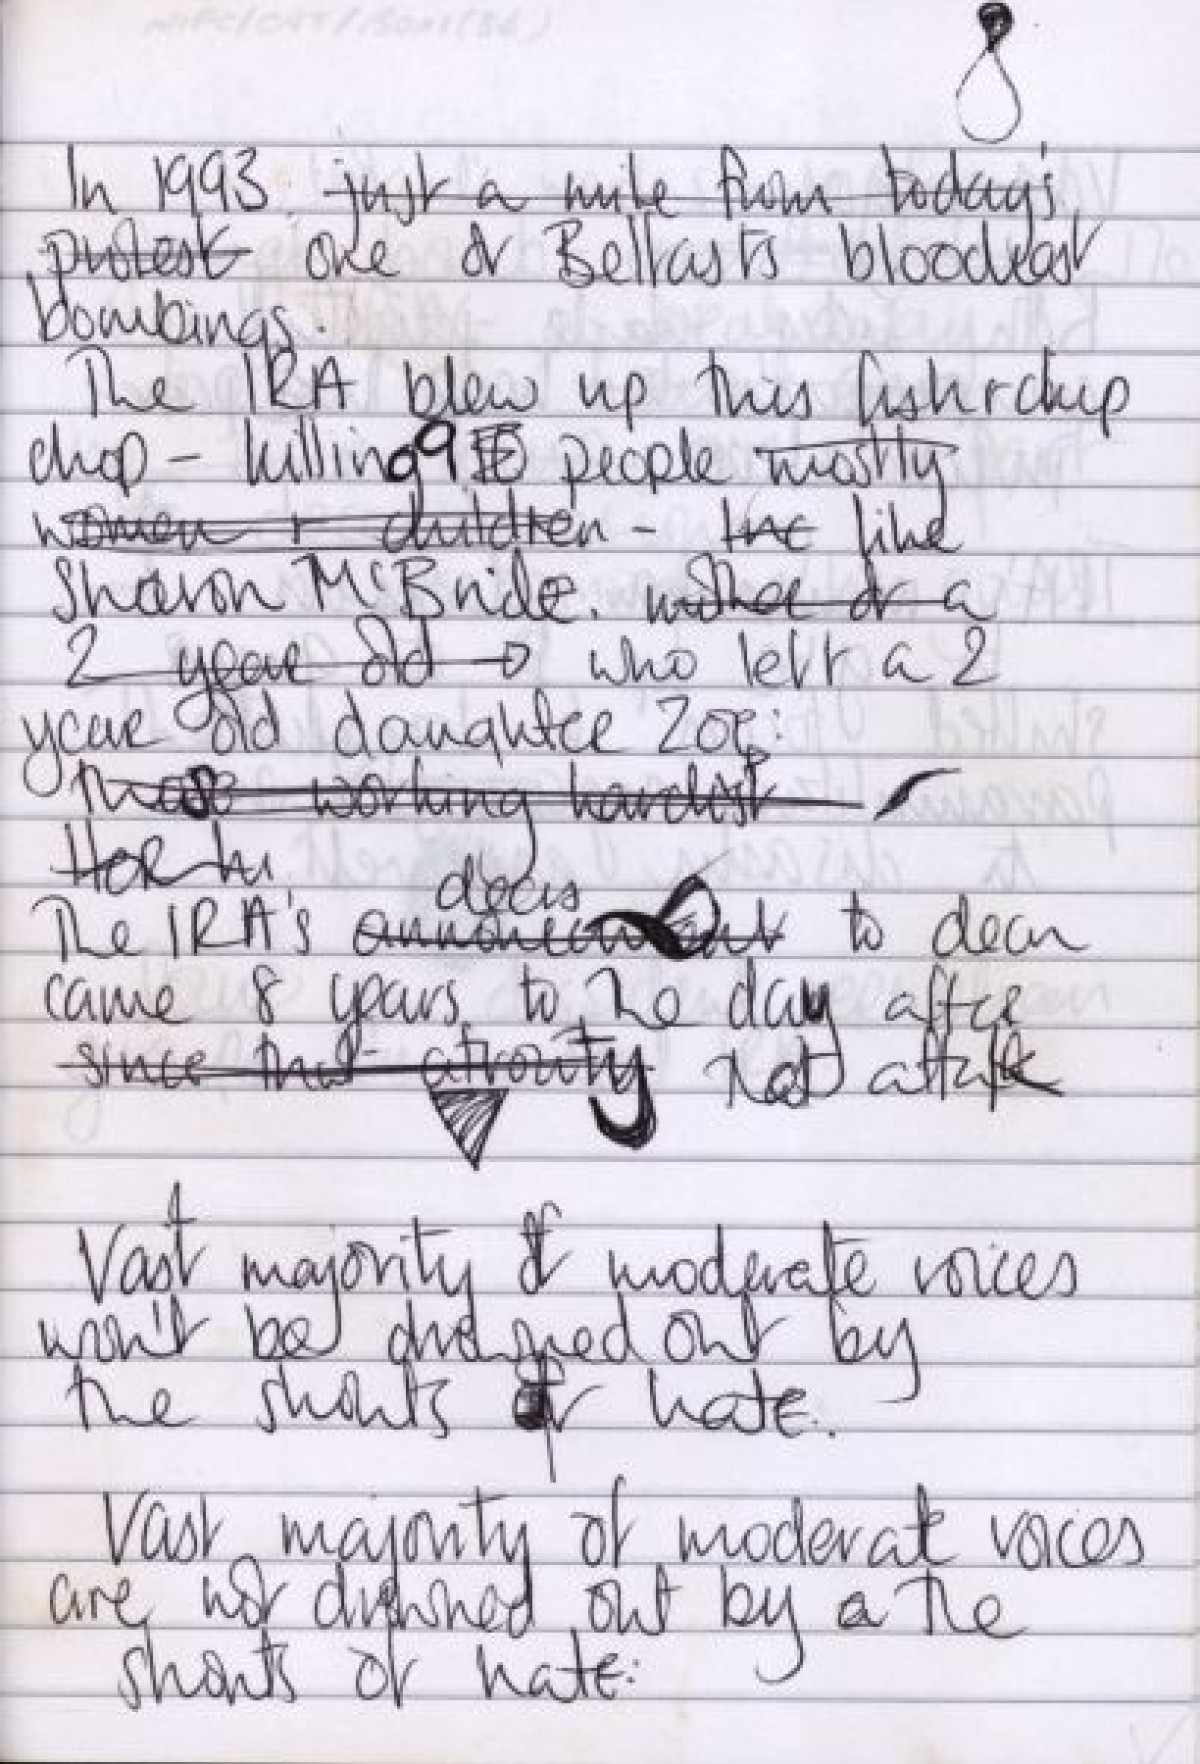 In 1993 just a mile from today's
protest one of Belfasts bloodiest
bombings.
The IRA blew up this fish + chip
chop - killing 9 people mostly
women + children - the like
Sharon McBride. mother of a
2 year old who left a 2
year old daughter Zoe:
those working hardest
decis
The IRA's announcement to decom
came 8 years to the day after
since that atrocity that attack
Vast majority of moderate voices
won't be drowned out by
the shouts of hate.
Vast majority of moderate voices
are not drowned out by a the
shouts of hate: